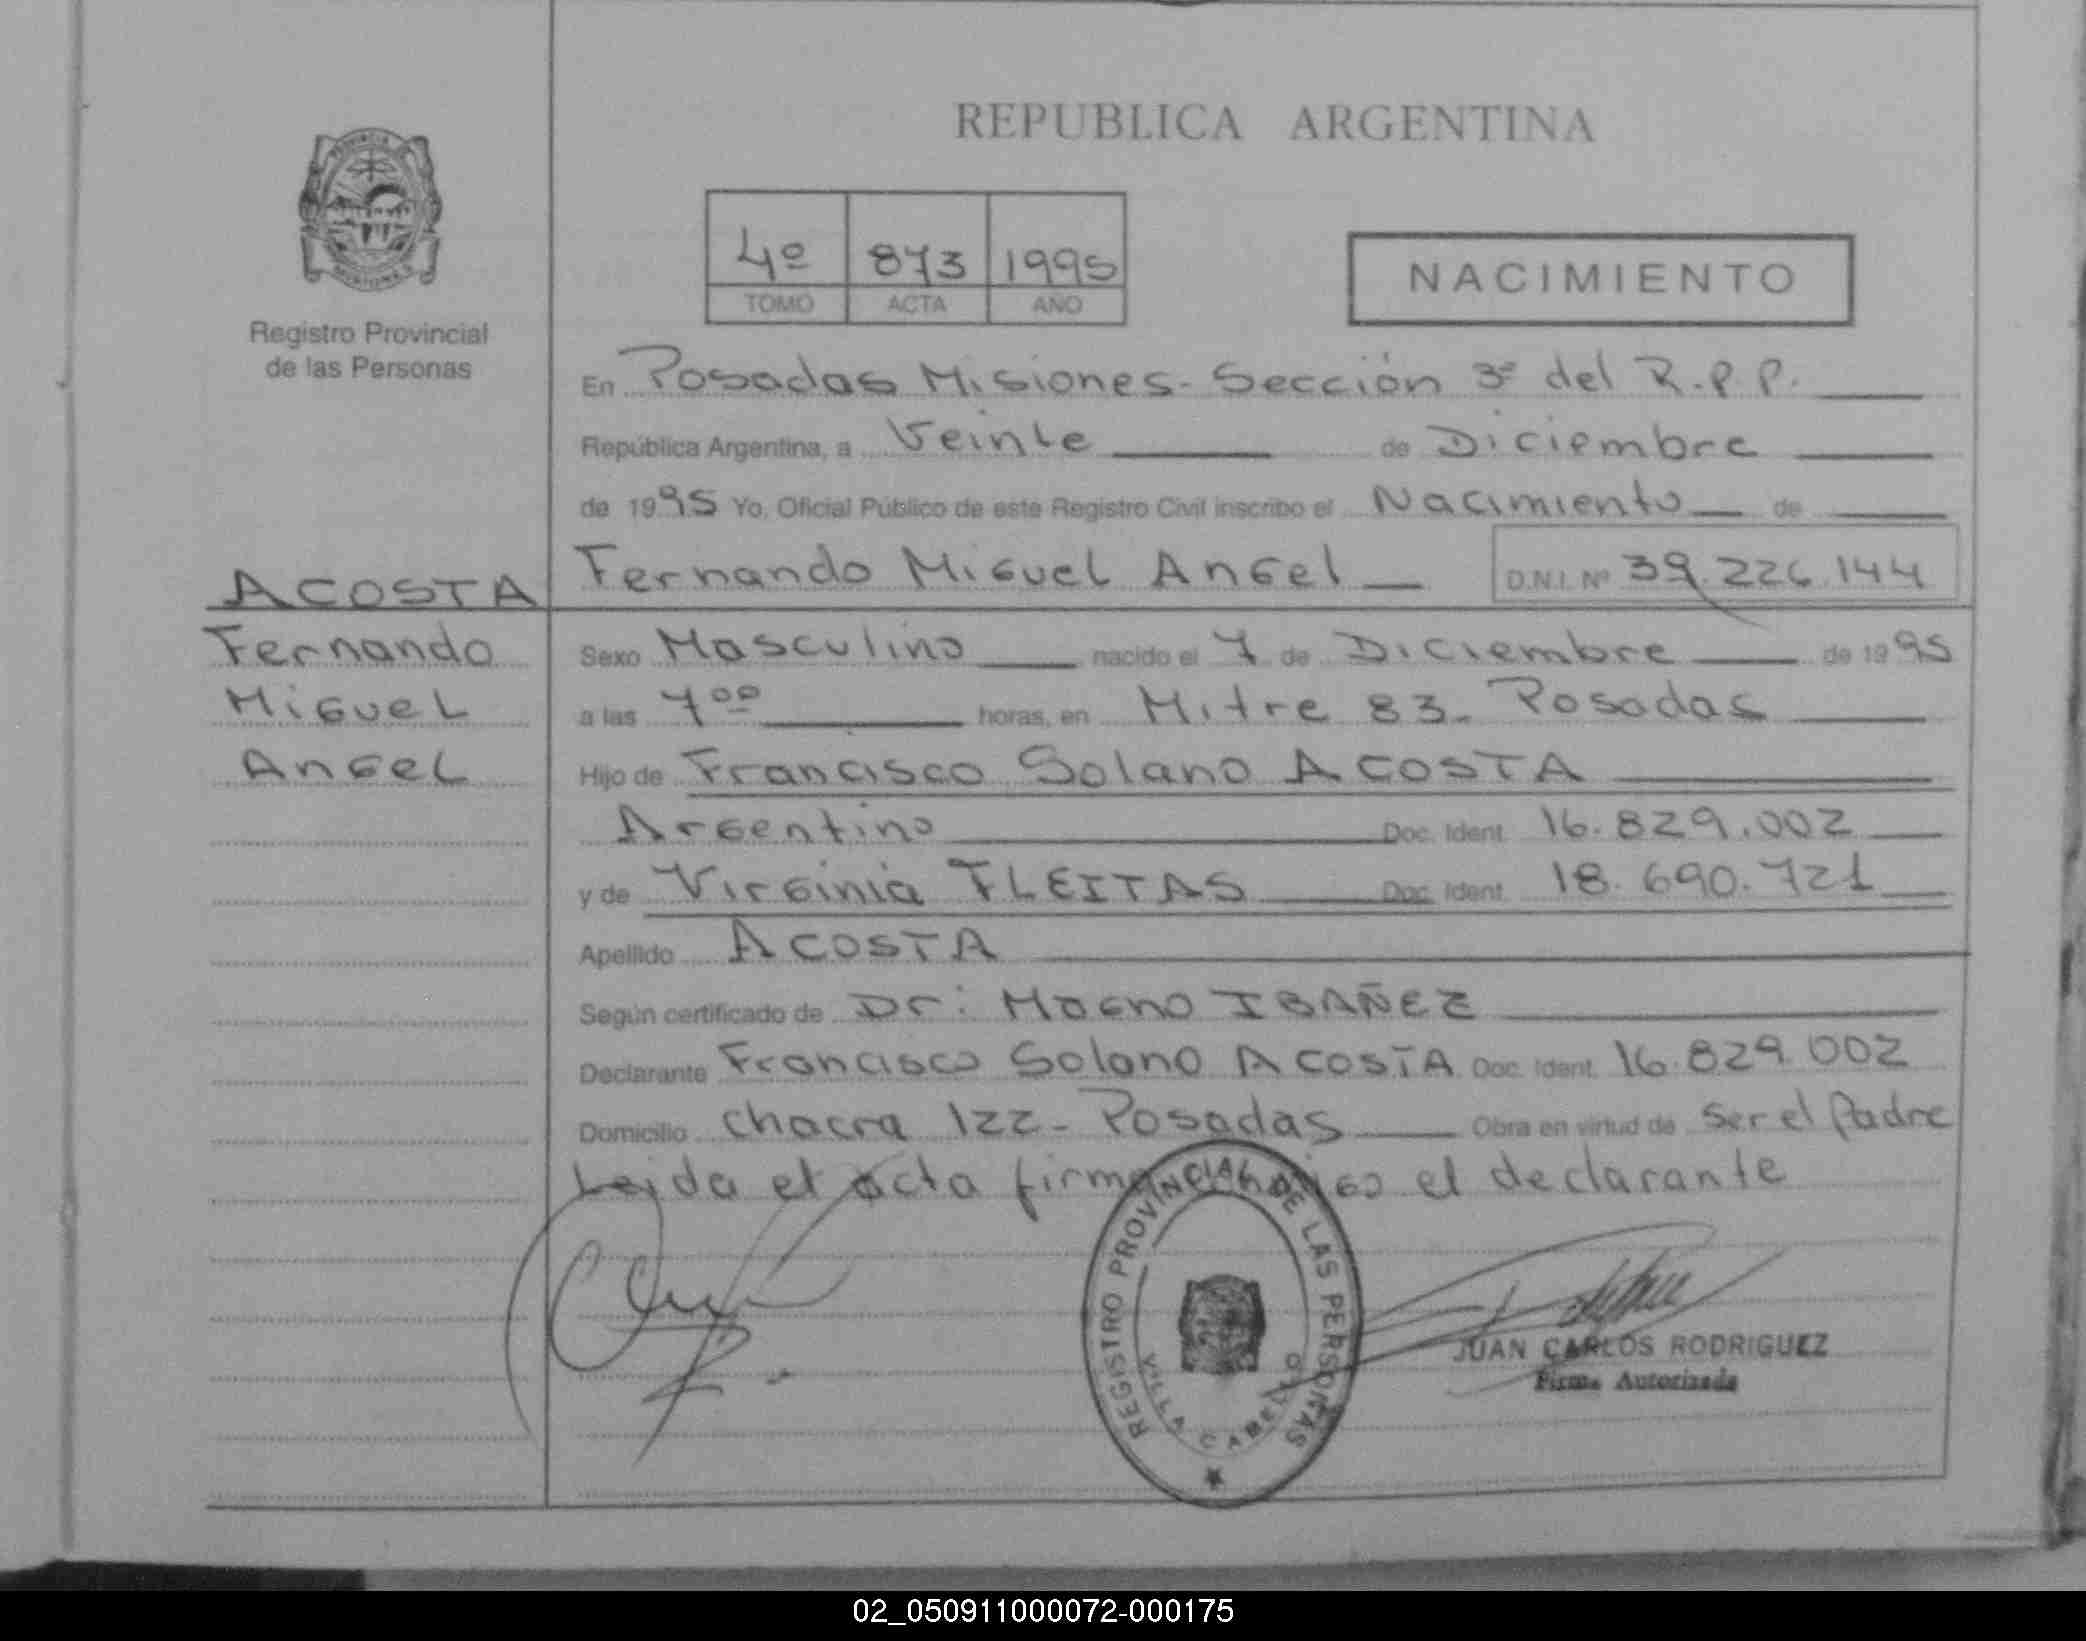 REPUBLICA ARGENTINA
4º 873 1995
TOMO ACTA AÑO
NACIMIENTO
Registro Provincial
de las Personas
En Posadas Misiones - Sección 3ª del R.P.P.
República Argentina, a Veinte de Diciembre
de 1995 Yo, Oficial Público de este Registro Civil inscribo el Nacimiento de
Fernando Miguel Angel D.N.I. Nº 39.226.144
ACOSTA
Fernando
Miguel
Angel
Sexo Masculino nacido el 7 de Diciembre de 1995
a las 7⁰⁰ horas, en Mitre 83 - Posadas
Hijo de Francisco Solano ACOSTA
Argentino Doc. Ident. 16.829.002
y de Virginia FLEITAS Doc. Ident. 18.690.721
Apellido ACOSTA
Según certificado de Dr: Magno IBAÑEZ
Declarante Francisco Solano ACOSTA Doc. Ident. 16.829.002
Domicilio chacra 122 - Posadas Obra en virtud de Ser el Padre
Leida el acta firma el declarante
REGISTRO PROVINCIAL DE LAS PERSONAS
VILLA CABELLO
JUAN CARLOS RODRIGUEZ
Firma Autorizada
02_050911000072-000175